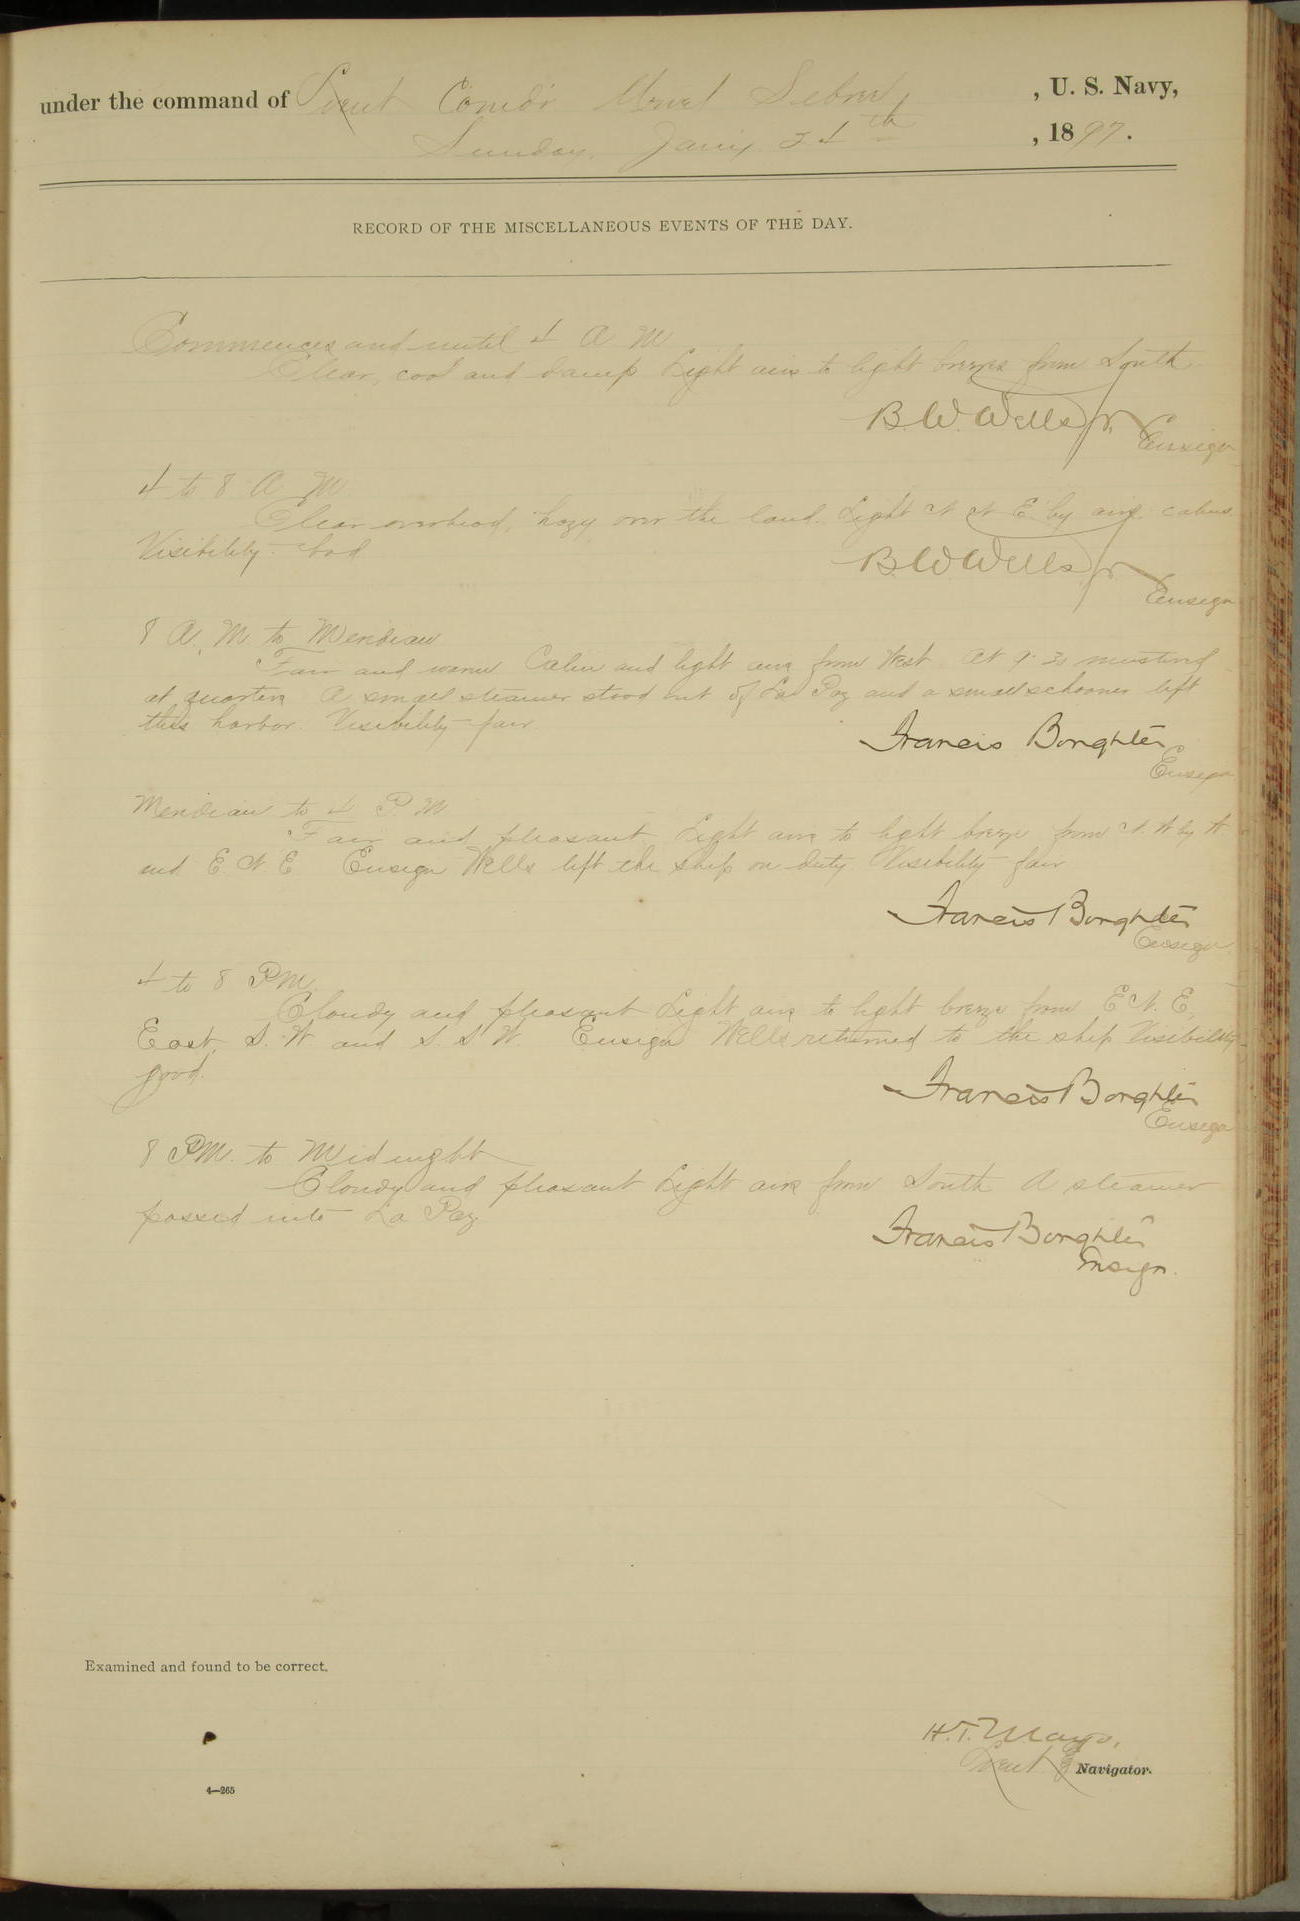 under the command of Lieut Comdr Uriel Sebree, U. S. Navy,
Sunday, Jan'y 24th, 1897.
RECORD OF THE MISCELLANEOUS EVENTS OF THE DAY.
Commences and until 4 A M
Clear, cool and damp Light airs to light breezes from South
B. W. Wells Jr.
Ensign
4 to 8 A M
Clear overhead, hazy over the land. Light N N E by airs calms
Visibility - bad
B. W. Wells Jr
Ensign
8 A. M. to Meridian
Fair and warm Calm and light airs from West At 9.30 mustered
at quarters A small steamer stood out of La Paz and a small schooner left
this harbor. Visibility - fair
Francis Boughter
Ensign
Meridian to 4 P. M
Fair and pleasant Light airs to light breeze from by
and E. N E Ensign Wells left the ship on duty Visibility fair
Francis Boughter
Ensign
4 to 8 PM.
Cloudy and pleasant Light airs to light breeze from E N. E,
East, S. W and S. S W. Ensign Wells returned to the ship Visibility
good.
Francis Boughter
Ensign
8 PM. to Midnight
Cloudy and pleasant Light airs from South A steamer
passed into La Paz
Francis Boughter
Ensign.
Examined and found to be correct.
H. T. Mayo,
Lieut & Navigator.
4—265